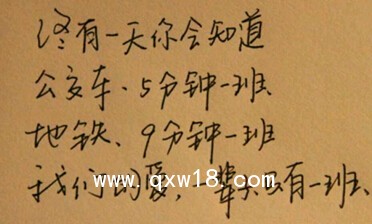 终有一天你会知道
公交车、5分钟一班、
地铁、9分钟一班
我们的爱,一辈只有一班、
www.qxw18.com